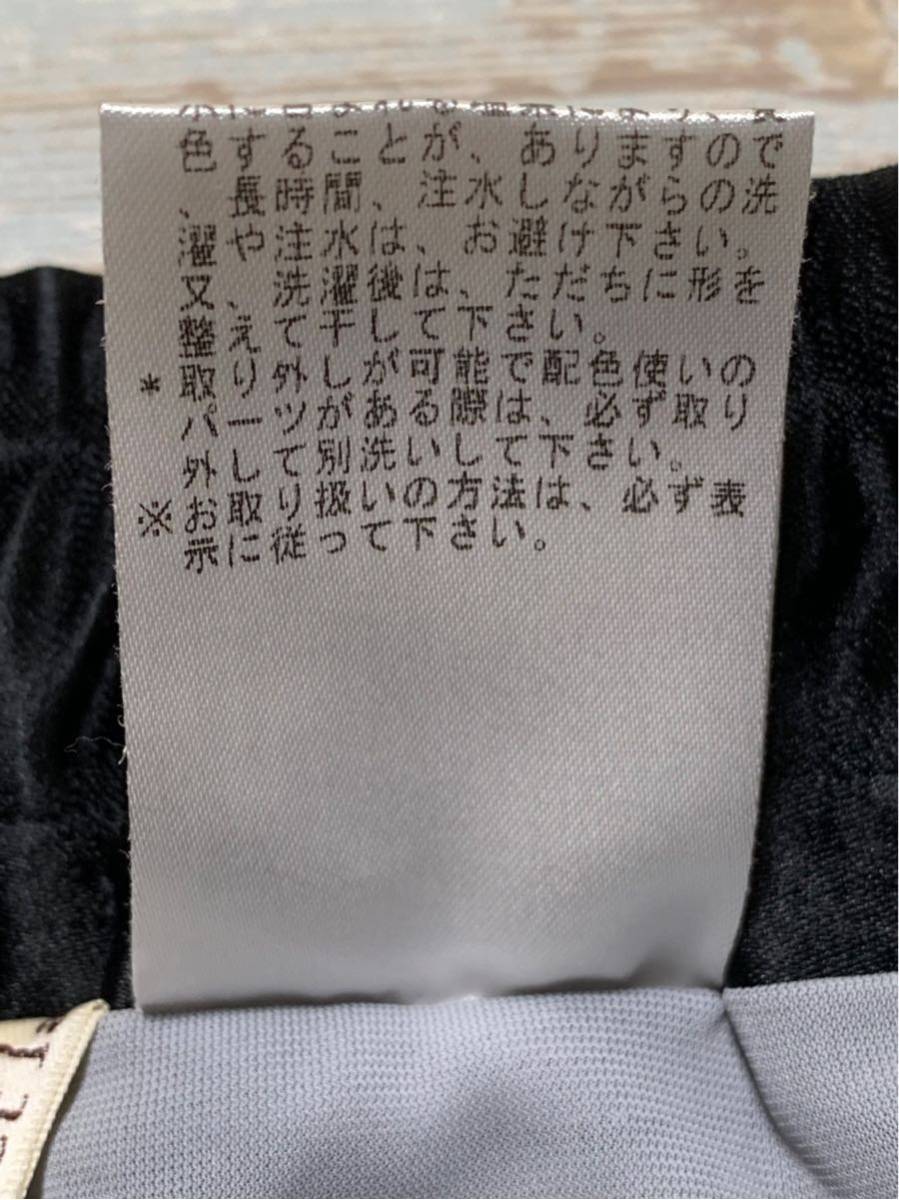 色することが、ありますので
、長時間、注水しながらの洗
濯や注水は、お避け下さい。
又、洗濯後は、ただちに形を
整えて干して下さい。
*取り外しが可能で配色使いの
パーツがある際は、必ず取り
外して別洗いして下さい。
※お取り扱いの方法は、必ず表
示に従って下さい。